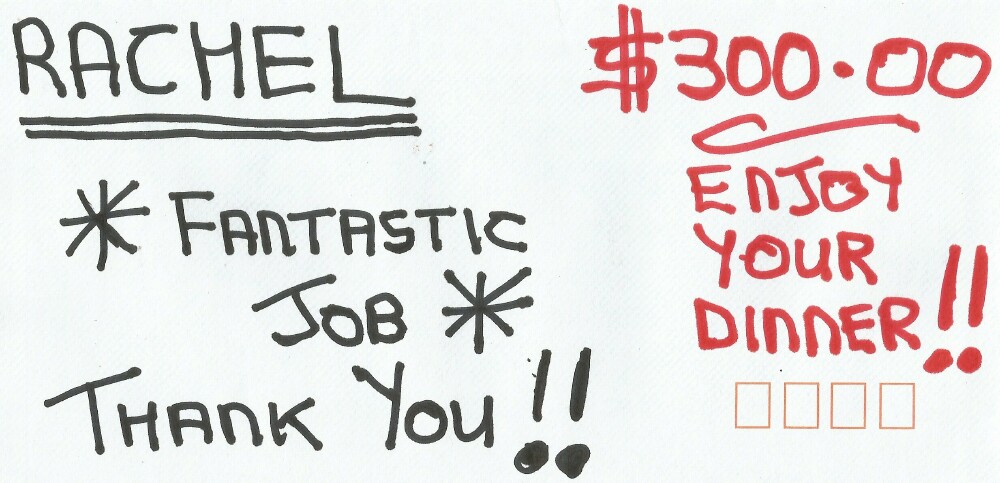 RACHEL
* FANTASTIC
JOB *
THANK YOU!!
$300.00
ENJOY
YOUR
DINNER!!